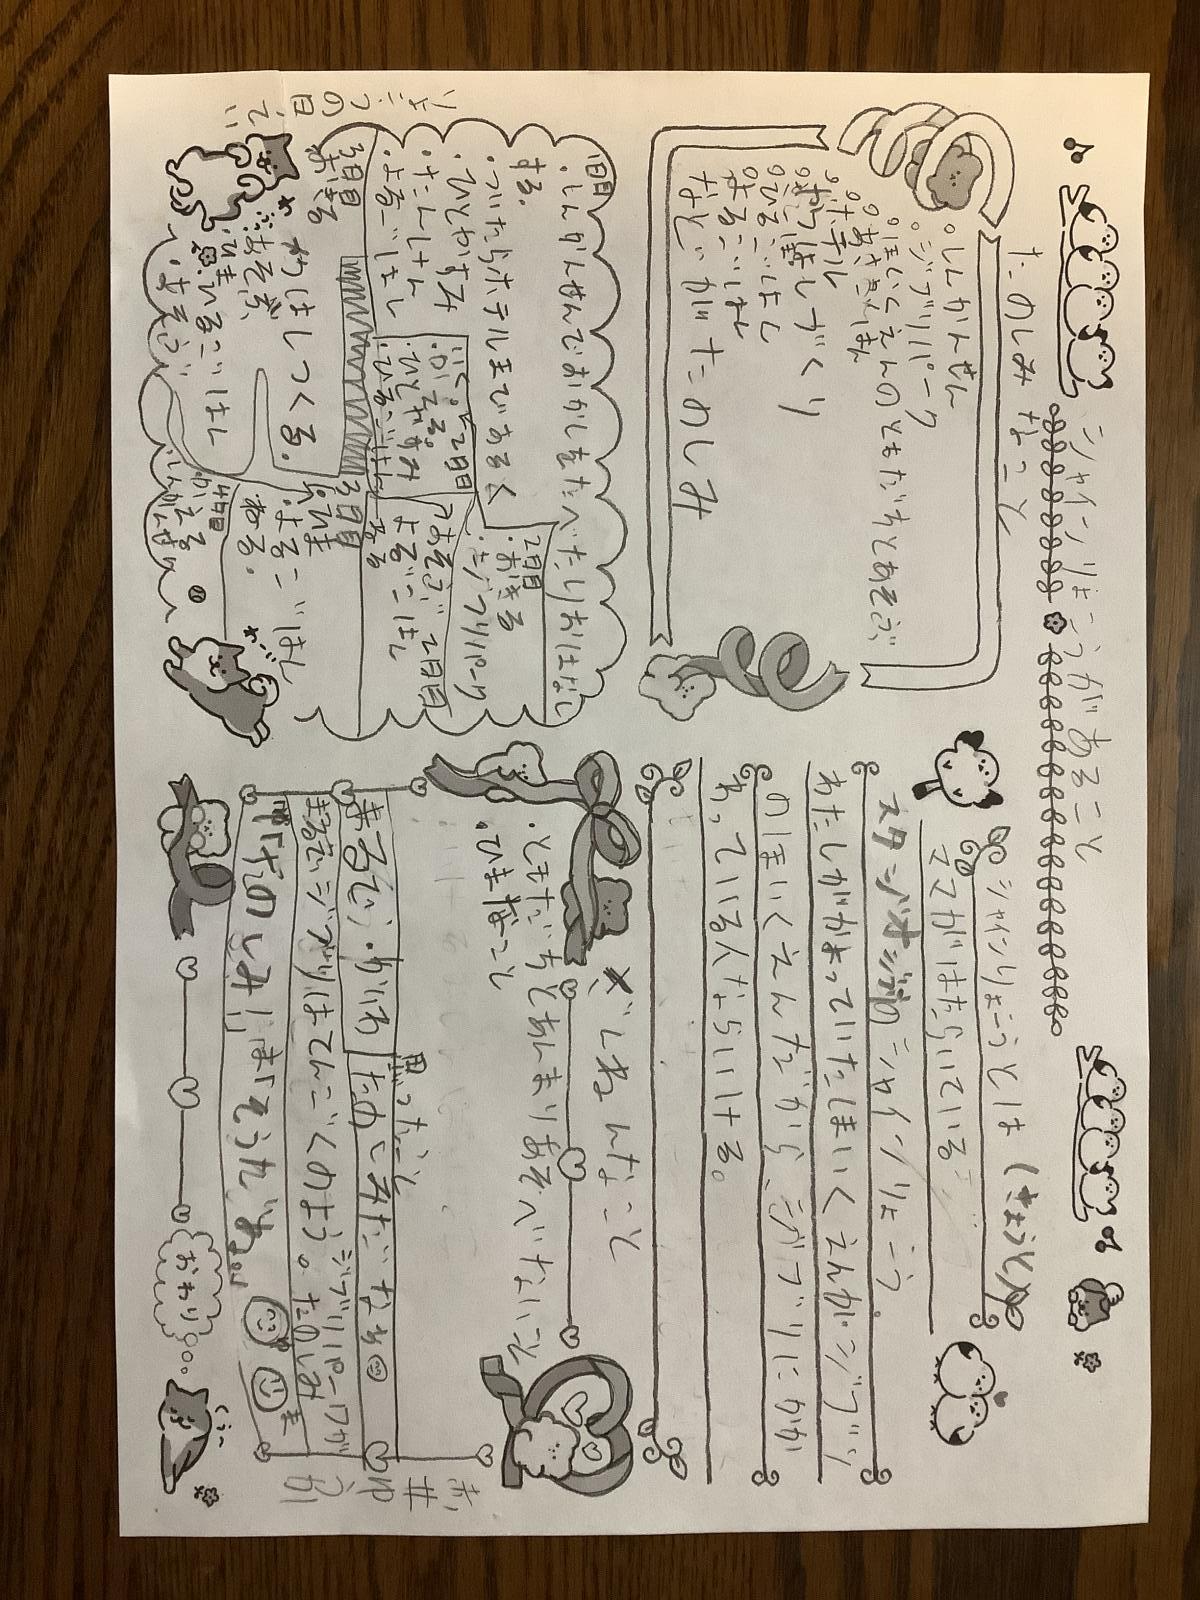 シャインりょこうがあること
たのしみなこと
。しんかんせん
。ジブリパーク
。ほいくえんのともだちとあそぶ
。あさごはん
。ホテル
。おはしづくり
。ひるごはん
。よるごはん
などいがたのしみ
シャインりょこうとは(きょうと)
ママがはたらいている
スタジオジブリのシャインりょこう。
わたしがかよっていたほいくえんがジブリ
のほいくえんだから、ジブリにかか
わっている人ならいける。
りょこうの日てい
1日目
・しんかんせんでおかしをたべたりおはなし
する。
・ついたらホテルまであるく
・ひとやすみ
・たんけん
・よるごはん
2日目
・おきる
・ジブリパーク
いく。
2日目
・かえる。
・ひとやすみ
・ひるごはん
2日目
・あそぶ
・よるごはん
・ねる
3日目
おきる
おはしつくる。
・あそぶ
・ひま
・ひるごはん
3日目
・ひま
・よるごはん
ねる。
4日目
かえる
しんかんせん
ざんねんなこと
・ともだちとあんまりあそべないこと
・ひまなこと
思ったこと
まるで、かいわ
たのしみだなぁ
まるでジブリはてんごくのよう。たのしみ
ジブリパークが
「たのしみ!」
おわり